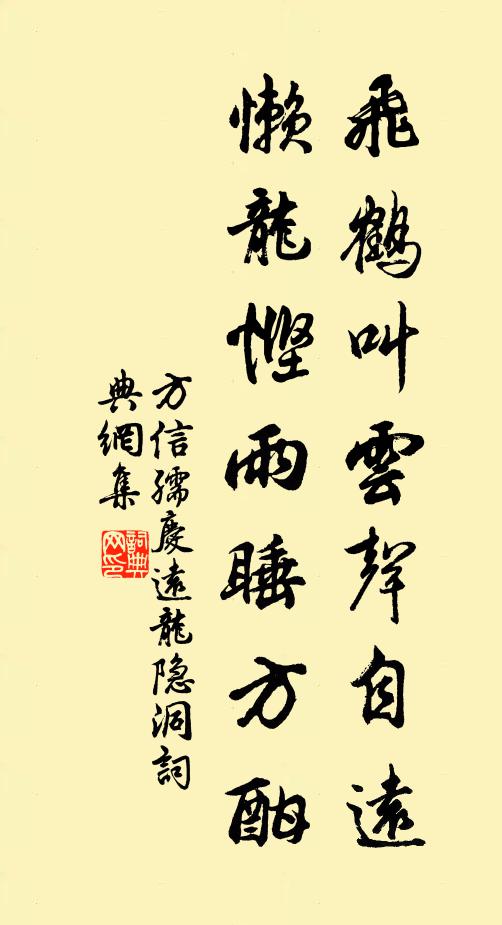 飛鶴叫雲聲自遠
懶龍慳雨睡方酣
方信孺慶遠龍隐洞詞
典網集
詞典網印